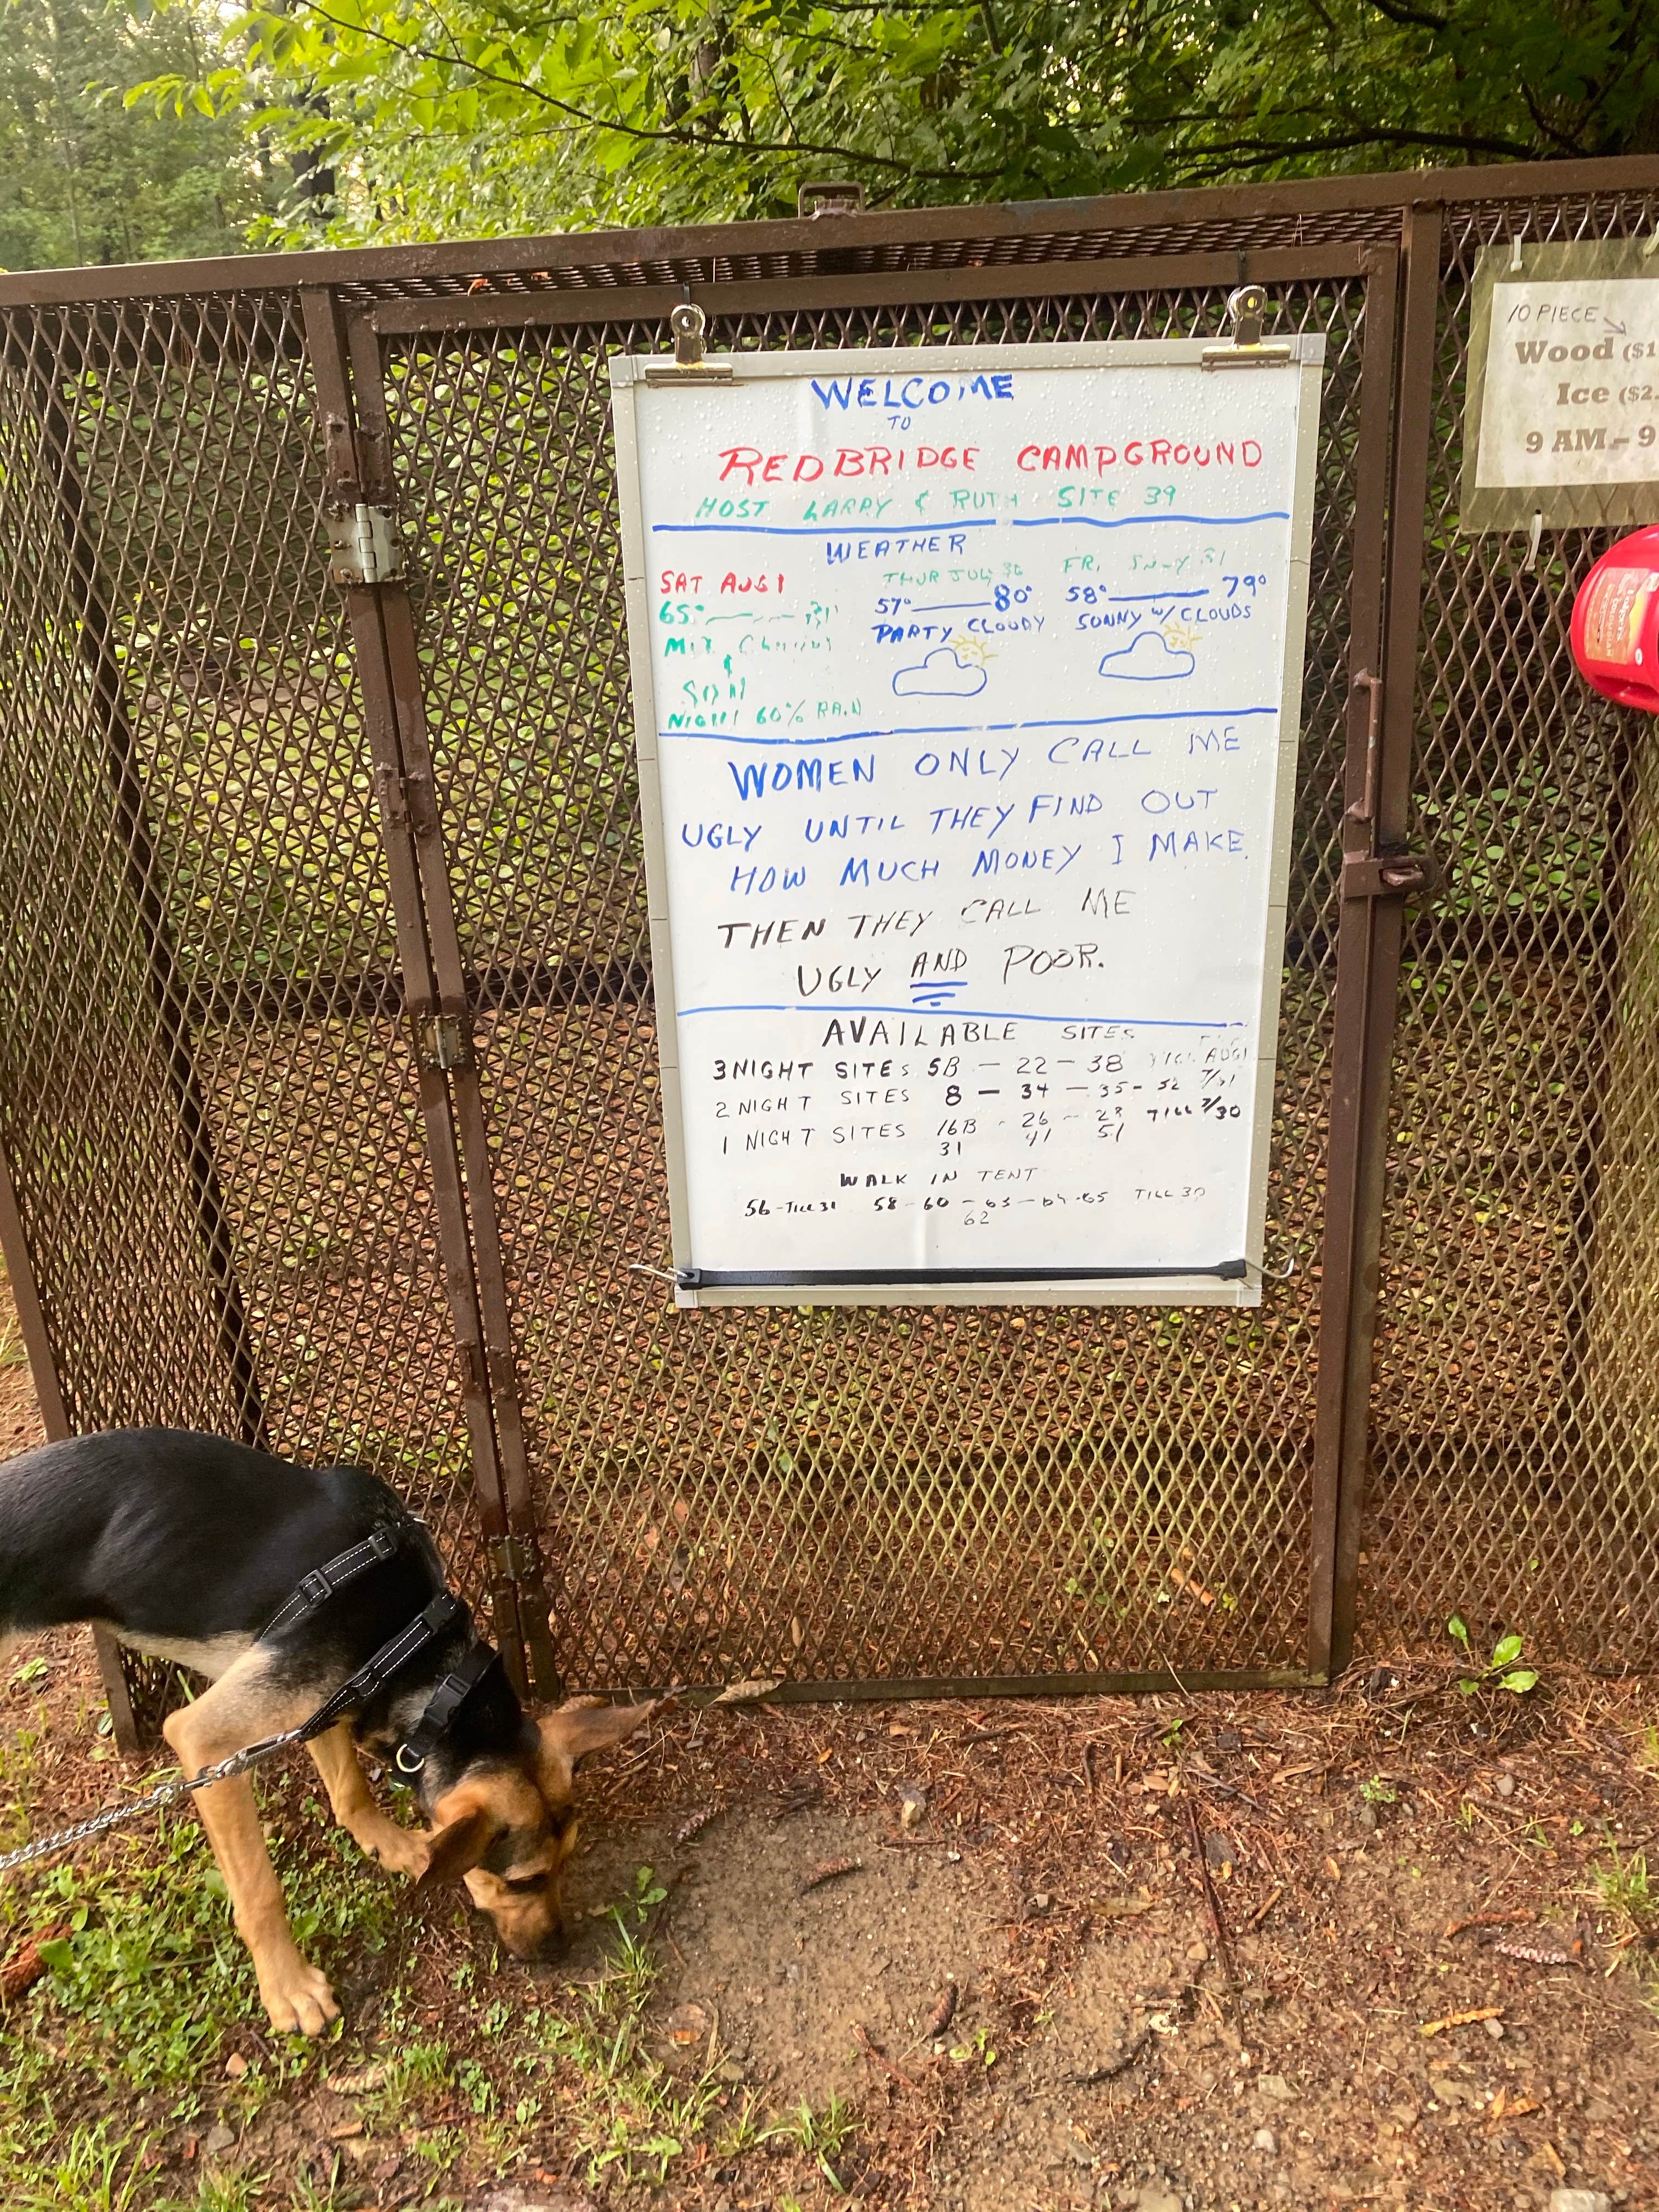 WELCOME
TO
REDBRIDGE CAMPGROUND
HOST LARRY & RUTH SITE 39
WEATHER
SAT AUG 1
65°
MIX
&
SUN
NIGHT 60% RAIN
THUR JULY 30
57° — 80°
PARTY CLOUDY
FRI 31
58° — 79°
SUNNY W/ CLOUDS
WOMEN ONLY CALL ME
UGLY UNTIL THEY FIND OUT
HOW MUCH MONEY I MAKE.
THEN THEY CALL ME
UGLY AND POOR.
AVAILABLE SITES
3 NIGHT SITES 5B — 22 — 38 AUG 1
2 NIGHT SITES 8 — 34 — 35 - 52 7/31
1 NIGHT SITES 16B - 26 - 28 TILL 7/30
31 41 51
WALK IN TENT
56 - TILL 31 58 - 60 - 63 - 64 - 65 TILL 30
62
10 PIECE
Wood ($1
Ice ($2.
9 AM - 9